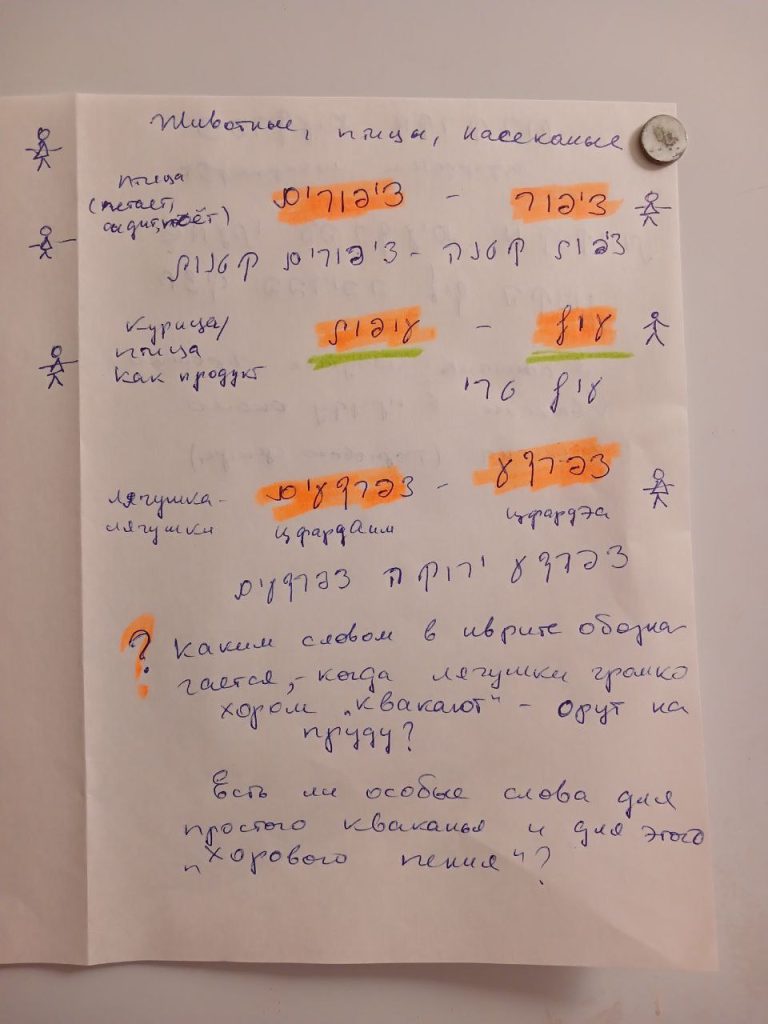 Животные, птицы, насекомые
птица
(летает,
сидит, поёт)
ציפור - ציפורים
ציפור קטנה - ציפורים קטנות
курица/
птица
как продукт
עוף - עופות
עוף טרי
лягушка-
лягушки
צפרדע - צפרדעים
цфардАим цфардЭа
צפרדע ירוקה צפרדעים
? Каким словом в иврите обозна-
чается, - когда лягушки громко
хором "квакают" - орут на
пруду?
Есть ли особые слова для
простого кваканья и для этого
"хорового пения"?